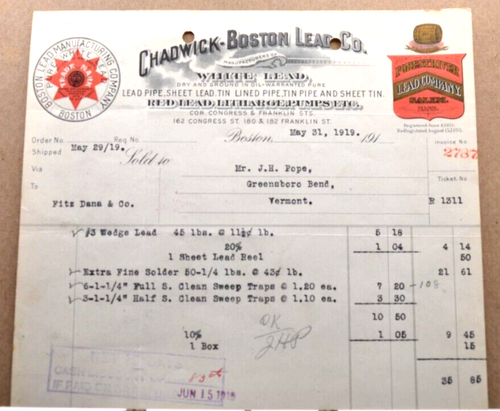 BOSTON LEAD MANUFACTURING COMPANY
BOSTON
CHADWICK-BOSTON LEAD CO.
MANUFACTURERS OF
WHITE LEAD,
DRY AND GROUND IN OIL-WARRANTED PURE
LEAD PIPE, SHEET LEAD, TIN LINED PIPE, TIN PIPE AND SHEET TIN.
RED LEAD, LITHARGE, PUMPS ETC.
COR. CONGRESS & FRANKLIN STS.
162 CONGRESS ST. 180 & 182 FRANKLIN ST.
FOREST RIVER
LEAD COMPANY.
SALEM,
MASS.
Order No. Req No. Boston, May 31, 1919. 191 Invoice No
Shipped May 29/19. Sold to 2787
Via Mr. J.H. Pope, Ticket No.
To Greensboro Bend,
Fitz Dana & Co. Vermont. R 1311
#3 Wedge Lead 45 lbs. @ 11½¢ lb. 5 18
20% 1 04 4 14
1 Sheet Lead Reel 50
Extra Fine Solder 50-1/4 lbs. @ 43¢ lb. 21 61
6-1-1/4" Full S. Clean Sweep Traps @ 1.20 ea. 7 20 -108
3-1-1/4" Half S. Clean Sweep Traps @ 1.10 ea. 3 30
10 50
OK
10% 1 05 9 45
1 Box 15
JUN 15 1919
35 85